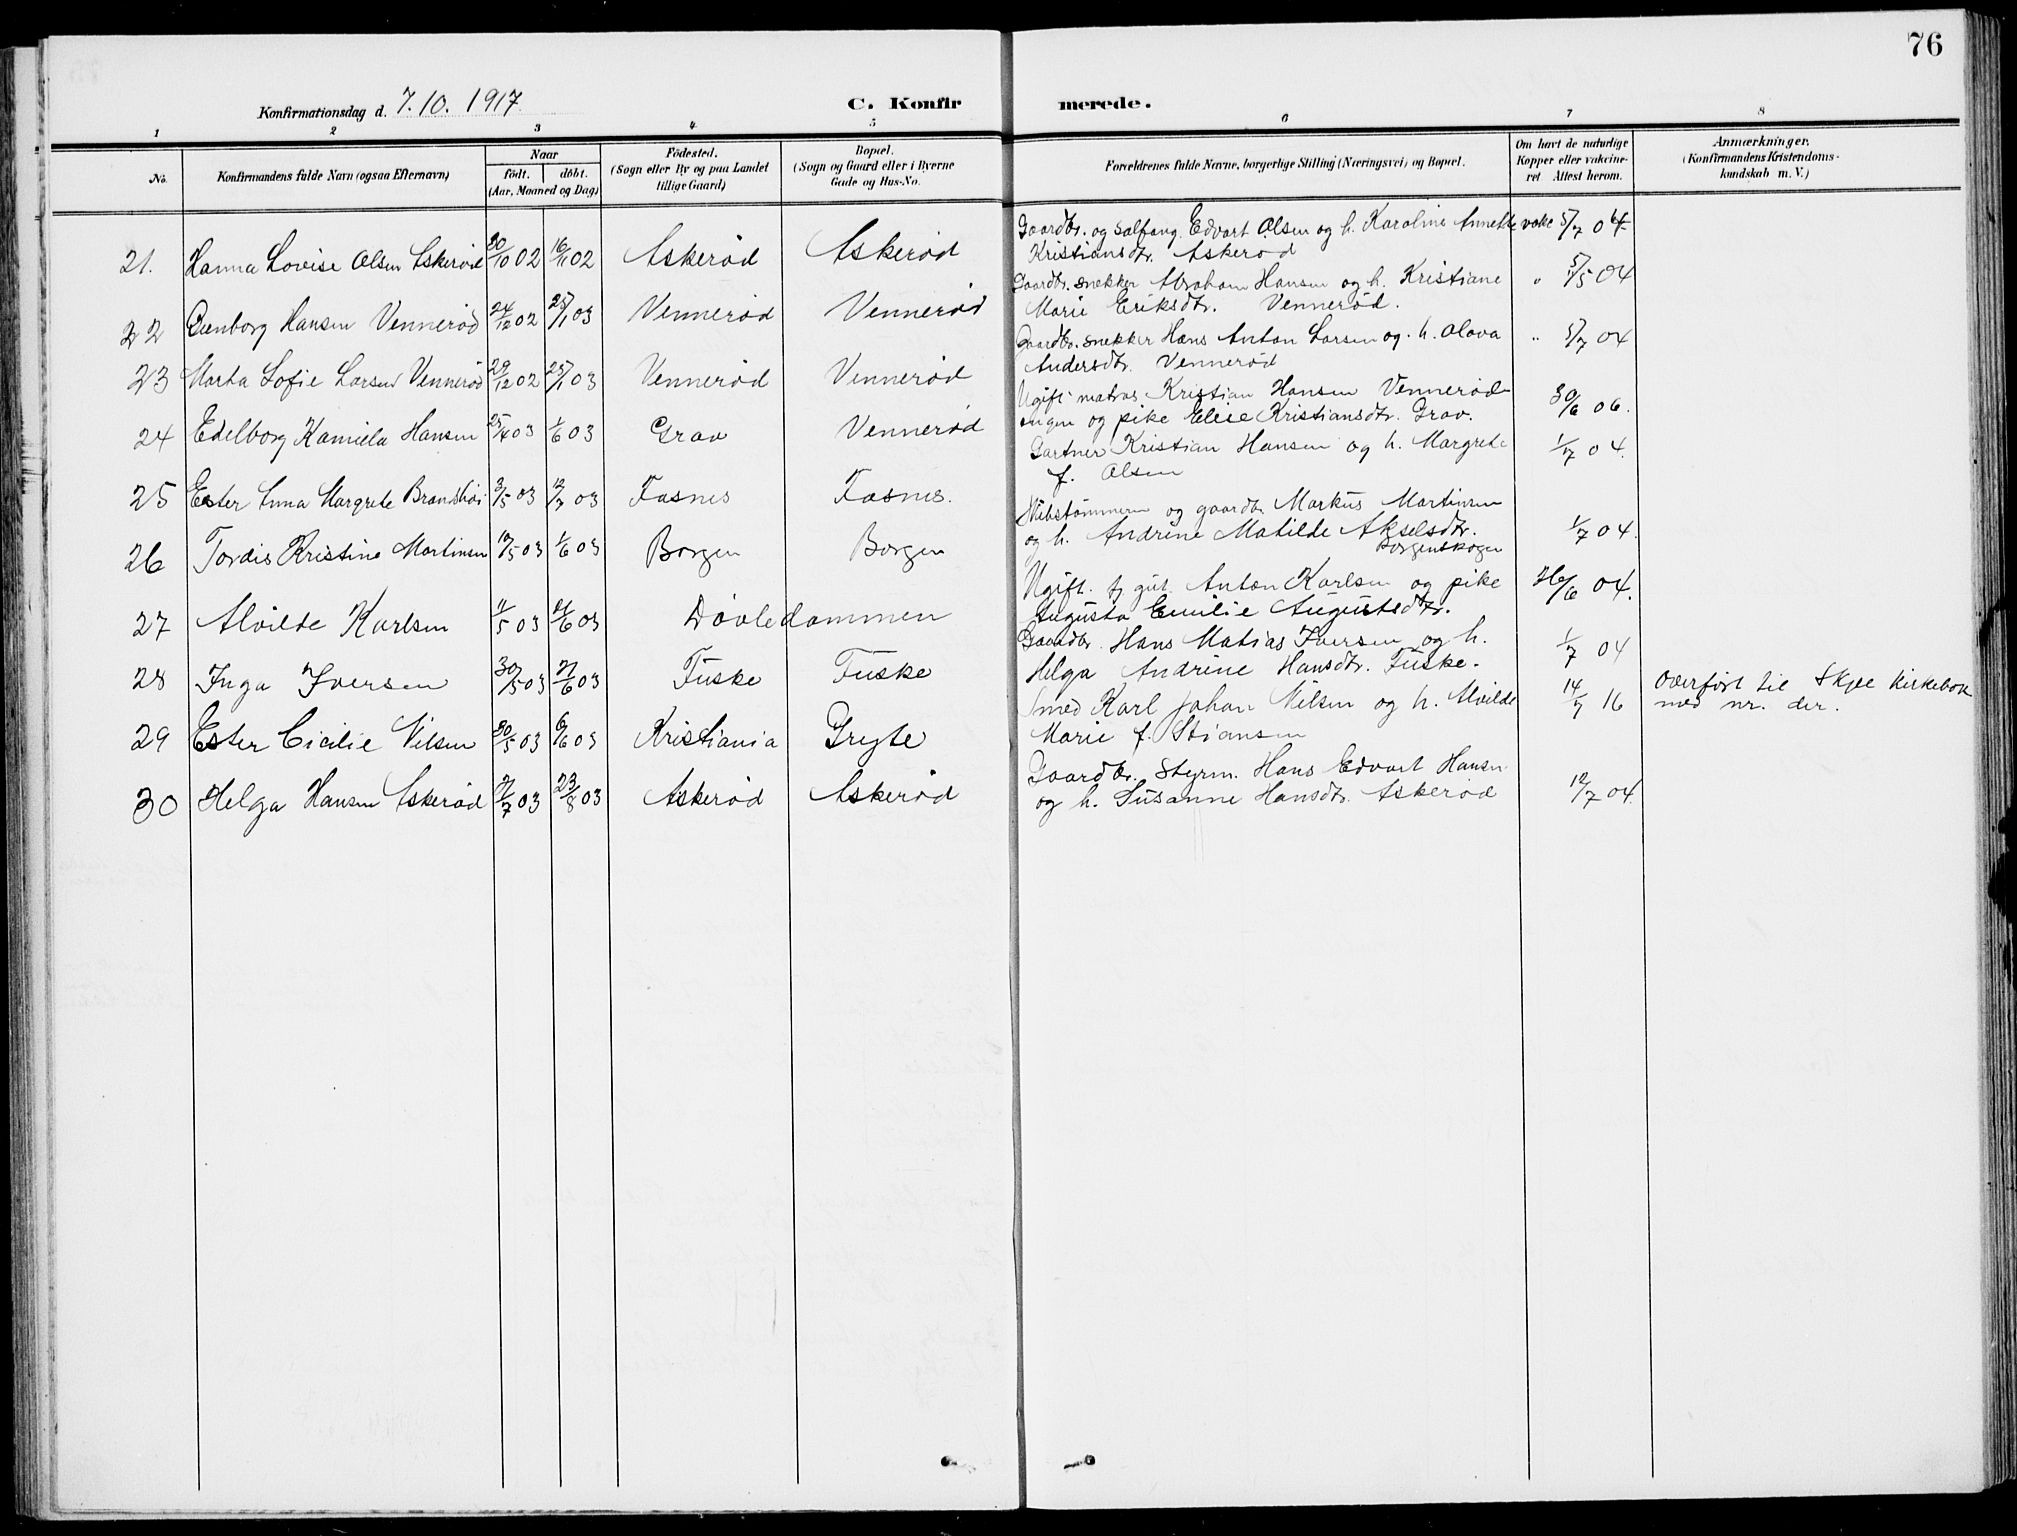 76
Konfirmationsdag d. 7.10. 1917
C. Konfirmerede.
1 2 3 4 5 6 7 8
No.
Konfirmandens fulde Navn (ogsaa Efternavn)
Naar
födt. döbt.
(Aar, Maaned og Dag)
Födested.
(Sogn eller By og paa Landet
tillige Gaard)
Bopæl.
(Sogn og Gaard eller i Byerne
Gade og Hus-No.
Forældrenes fulde Navne, borgerlige Stilling (Næringsvei) og Bopæl.
Om havt de naturlige
Kopper eller vakcine-
ret Attest herom.
Anmærkninger.
(Konfirmandens Kristendoms-
kundskab m. V.)
21. Hanna Lovise Olsen Askerød 30/10 02 16/11 02 Askerød Askerød Gaardbr. og salfang. Edvart Olsen og h. Karoline Annette vakc 5/7 04
Kristiansdtr. Askerød
22 Hansen Vennerød 24/12 02 25/1 03 Vennerød Vennerød Gaardbr. snekker Abraham Hansen og h. Kristiane " 5/5 04
Marie Eriksdtr. Vennerød.
23 Marta Sofie Larsen Vennerød 29/12 02 25/1 03 Vennerød Vennerød Gaardbr. snekker Hans Anton Larsen og h. Olava " 5/7 04
Andersdtr. Vennerød
24 Edelborg Kamilla Hansen 25/4 03 1/6 03 Grav Vennerød Ugift matros Kristian Hansen Vennerød- 30/6 06.
engen og pike Elise Kristiansdtr. Grav.
25 Ester Anna Margrete 3/5 03 12/7 03 Fasnes Fasnes. Gartner Kristian Hansen og h. Margrete 1/7 04.
f. Olsen
26 Tordis Kristine Martinsen 12/5 03 1/6 03 Borgen Borgen Skibstømmerm og gaardbr. Markus Martinsen
og h. Andrine Matilde Akselsdtr. 1/7 04.
Borgenskogen
27 Alvilde Karlsen 11/5 03 21/6 03 Døvledammen Ugift. tj gut. Anton Karlsen og pike 26/6 04.
Augusta Emilie Augustsdtr.
28 Inga Iversen 30/5 03 21/6 03 Fuske Fuske Gaardbr. Hans Matias Iversen og h. 1/7 04
Helga Andrine Hansdtr. Fuske.
29 Ester Cicilie Nilsen 30/5 03 6/6 03 Kristiania Gryte Smed Karl Johan Nilsen og h. Alvilde 14/7 16 Overført til Skjee kirkebok
Marie f. Stiansen med nr. der.
30 Helga Hansen Askerød 21/7 03 23/8 03 Askerød Askerød Gaardbr. styrm. Hans Edvart Hansen
og h. Susanne Hansdtr. Askerød 12/7 04.